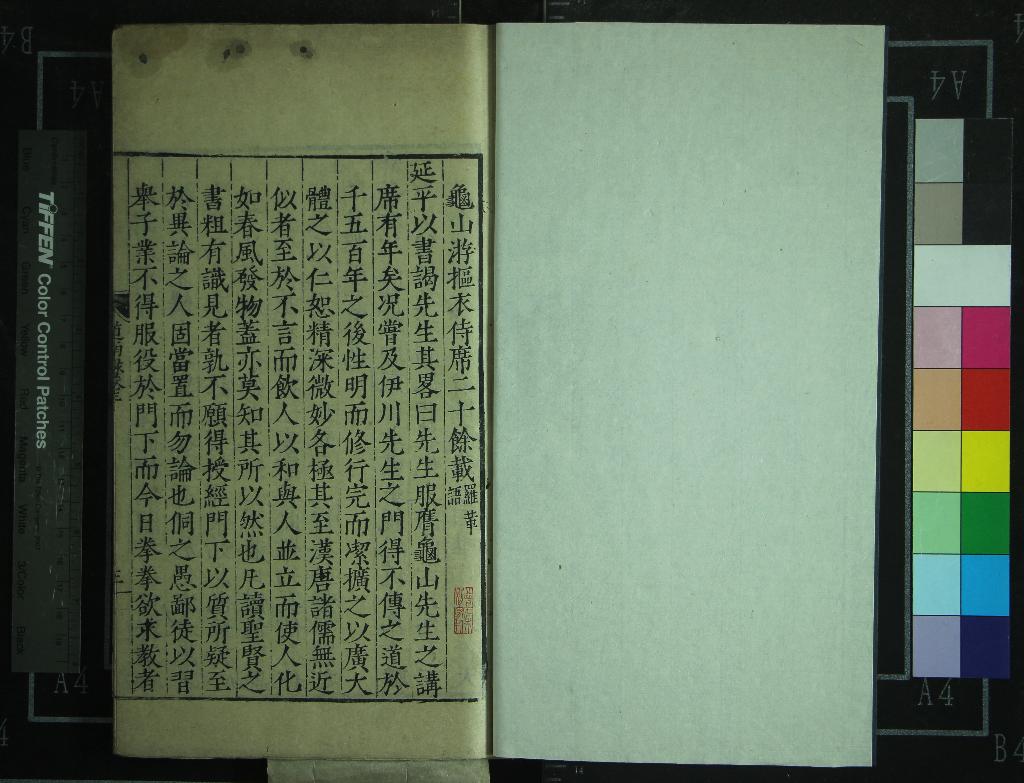 龜山游摳衣侍席二十餘載羅革語
延平以書謁先生其畧曰先生服膺龜山先生之講
席有年矣况嘗及伊川先生之門得不傳之道於
千五百年之後性明而修行完而潔擴之以廣大
體之以仁恕精深微妙各極其至漢唐諸儒無近
似者至於不言而飲人以和與人並立而使人化
如春風發物蓋亦莫知其所以然也凡讀聖賢之
書粗有識見者孰不願得授經門下以質所疑至
於異論之人固當置而勿論也侗之愚鄙徒以習
舉子業不得服役於門下而今日拳拳欲求教者
三
TIFFEN Color Control Patches
Blue
Cyan
Green
Yellow
Red
Magenta
White
3/Color
Black
A4
A4
A4
A4
B4
B4